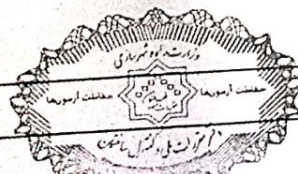 وزارت راه و شهرسازی
معاونت آزمون‌ها
معاونت آزمون‌ها
دفتر مقررات ملی و کنترل ساختمان